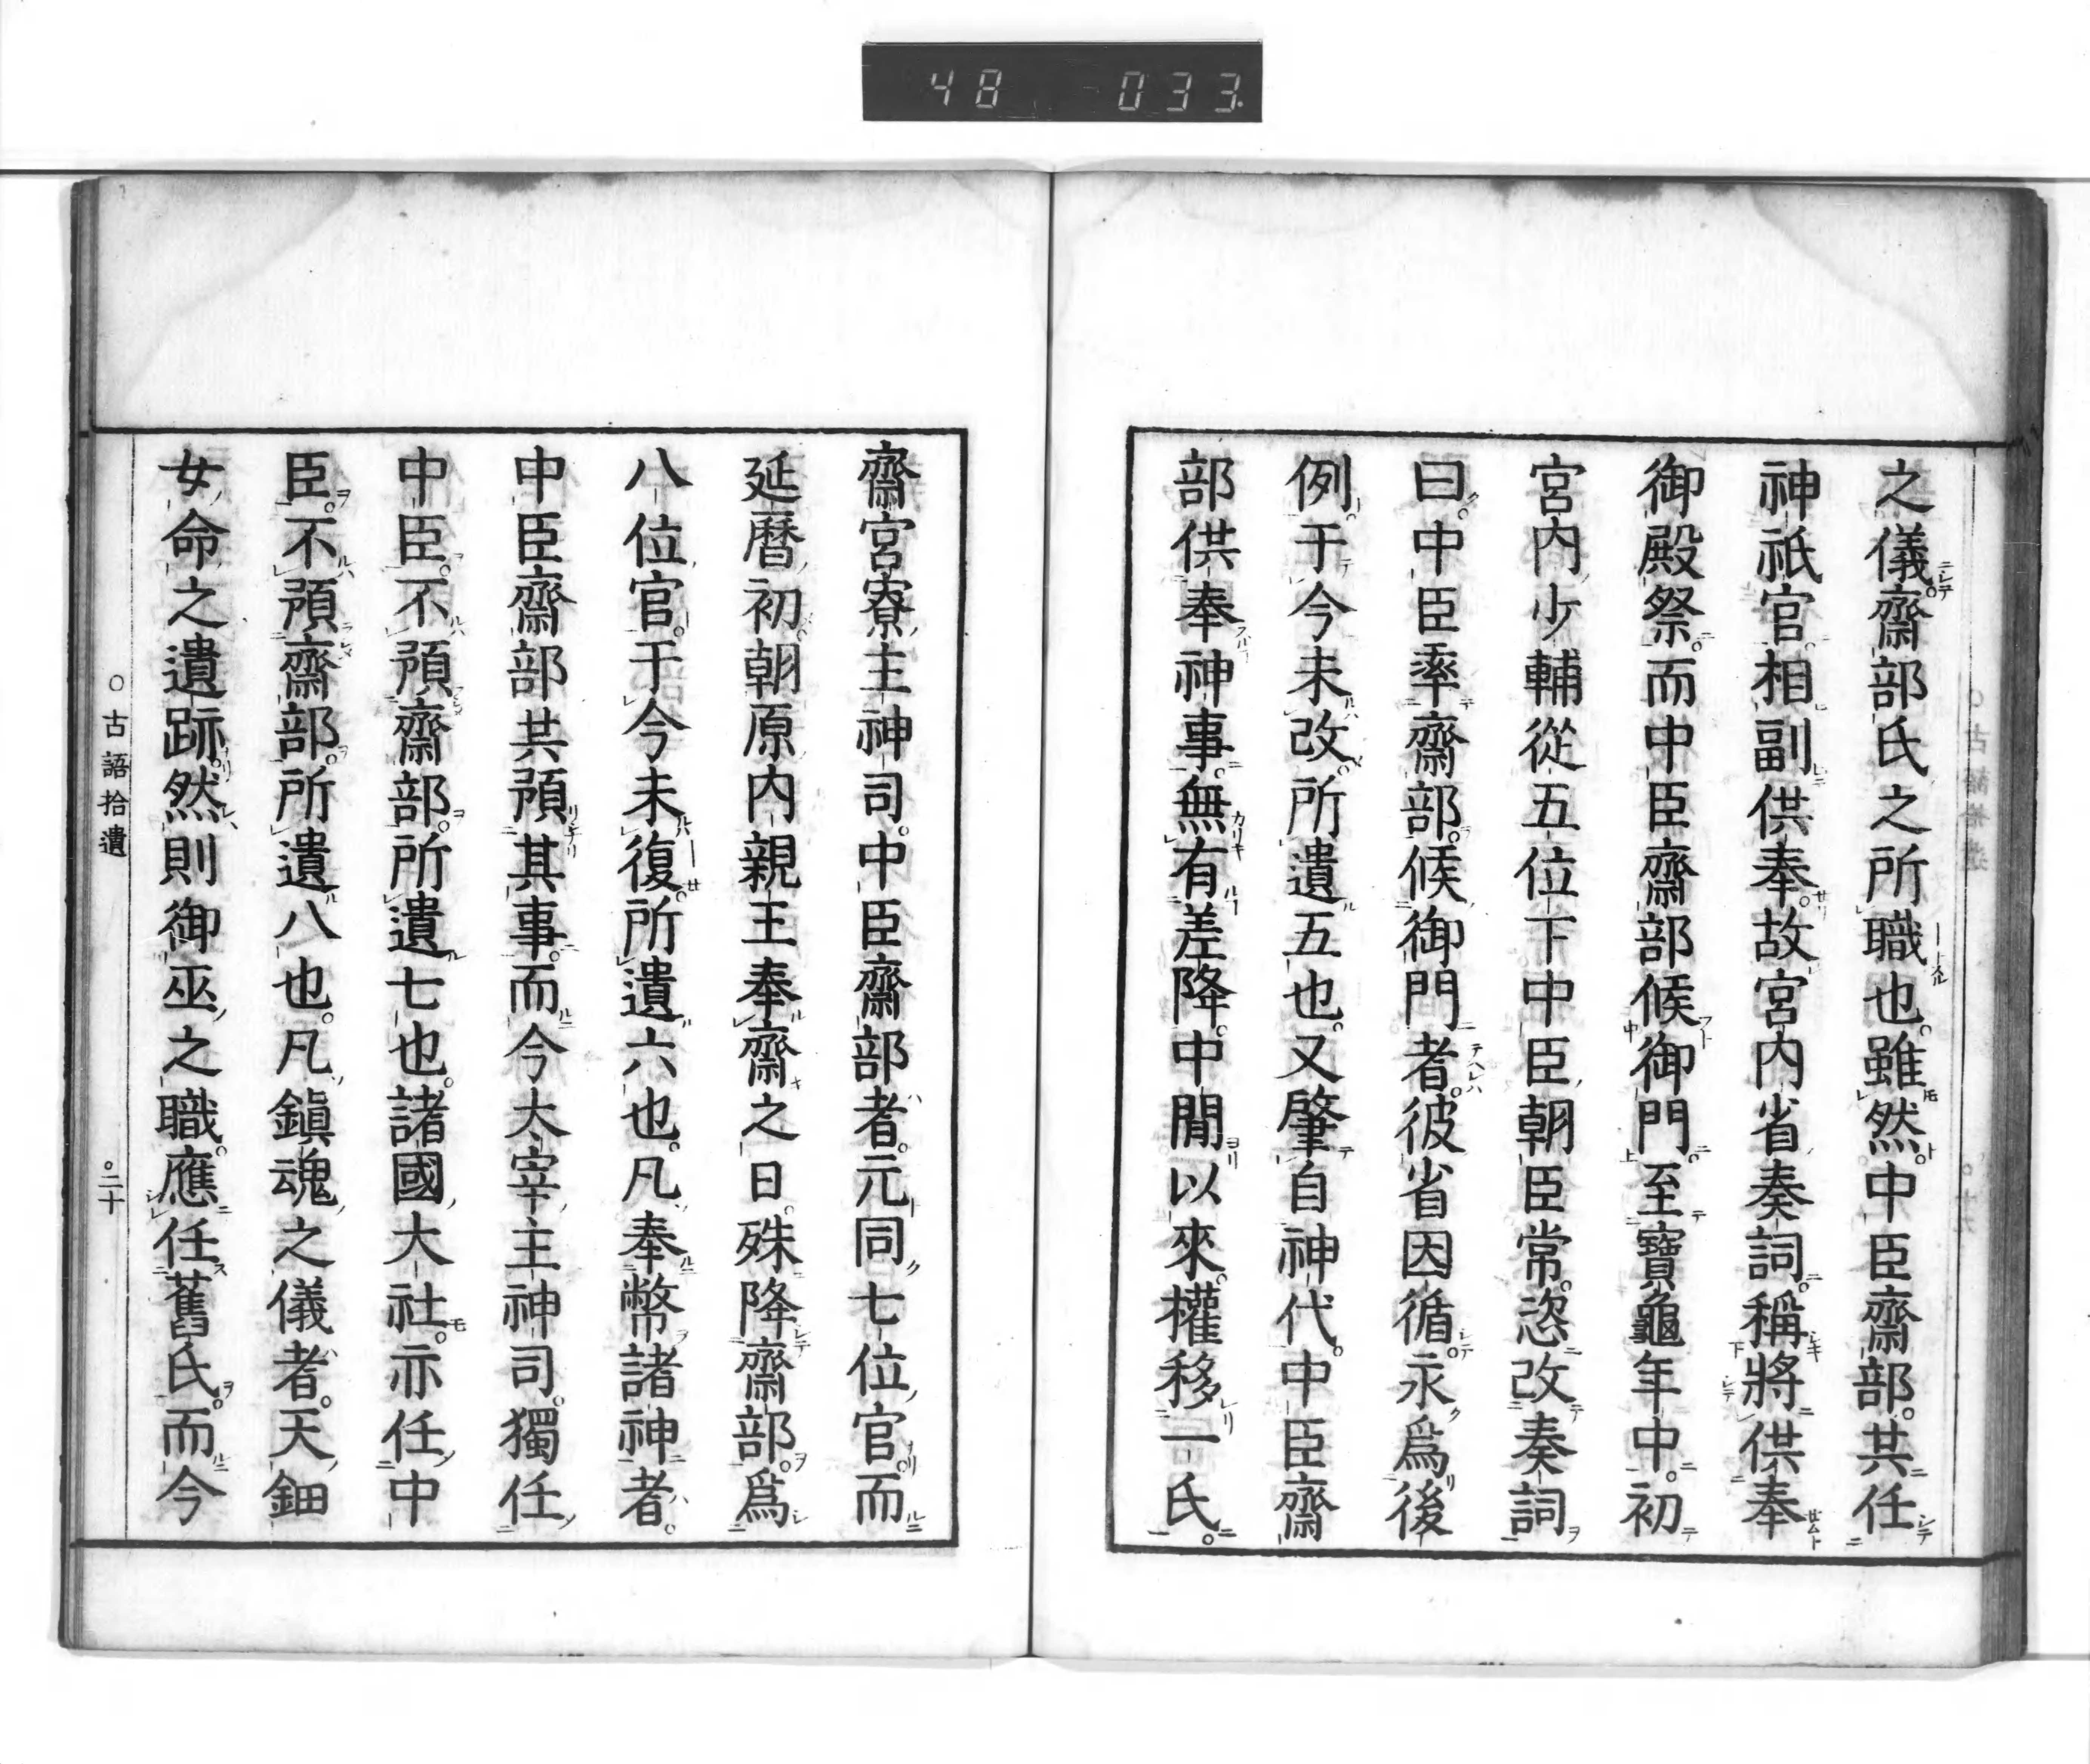 48 033
之儀。齋部氏之所職也。雖然。中臣齋部。共任
神祇官。相副供奉。故宮内省奏詞。稱將供奉
御殿祭。而中臣齋部候御門。至寶龜年中。初
宮内少輔從五位下中臣朝臣常。恣改奏詞
曰。中臣率齋部。候御門者。彼省因循。永爲後
例。于今未改。所遺五也。又肇自神代。中臣齋
部供奉神事。無有差降。中間以來。權移一氏。
齋宮寮主神司。中臣齋部者。元同七位官。而
延曆初。朝原内親王奉齋之日。殊降齋部。爲
八位官。于今未復。所遺六也。凡奉幣諸神者。
中臣齋部共預其事。而今大宰主神司。獨任
中臣。不預齋部。所遺七也。諸國大社。亦任中
臣。不預齋部。所遺八也。凡鎭魂之儀者。天鈿
女命之遺跡。然則御巫之職。應任舊氏。而今
○古語拾遺
○二十